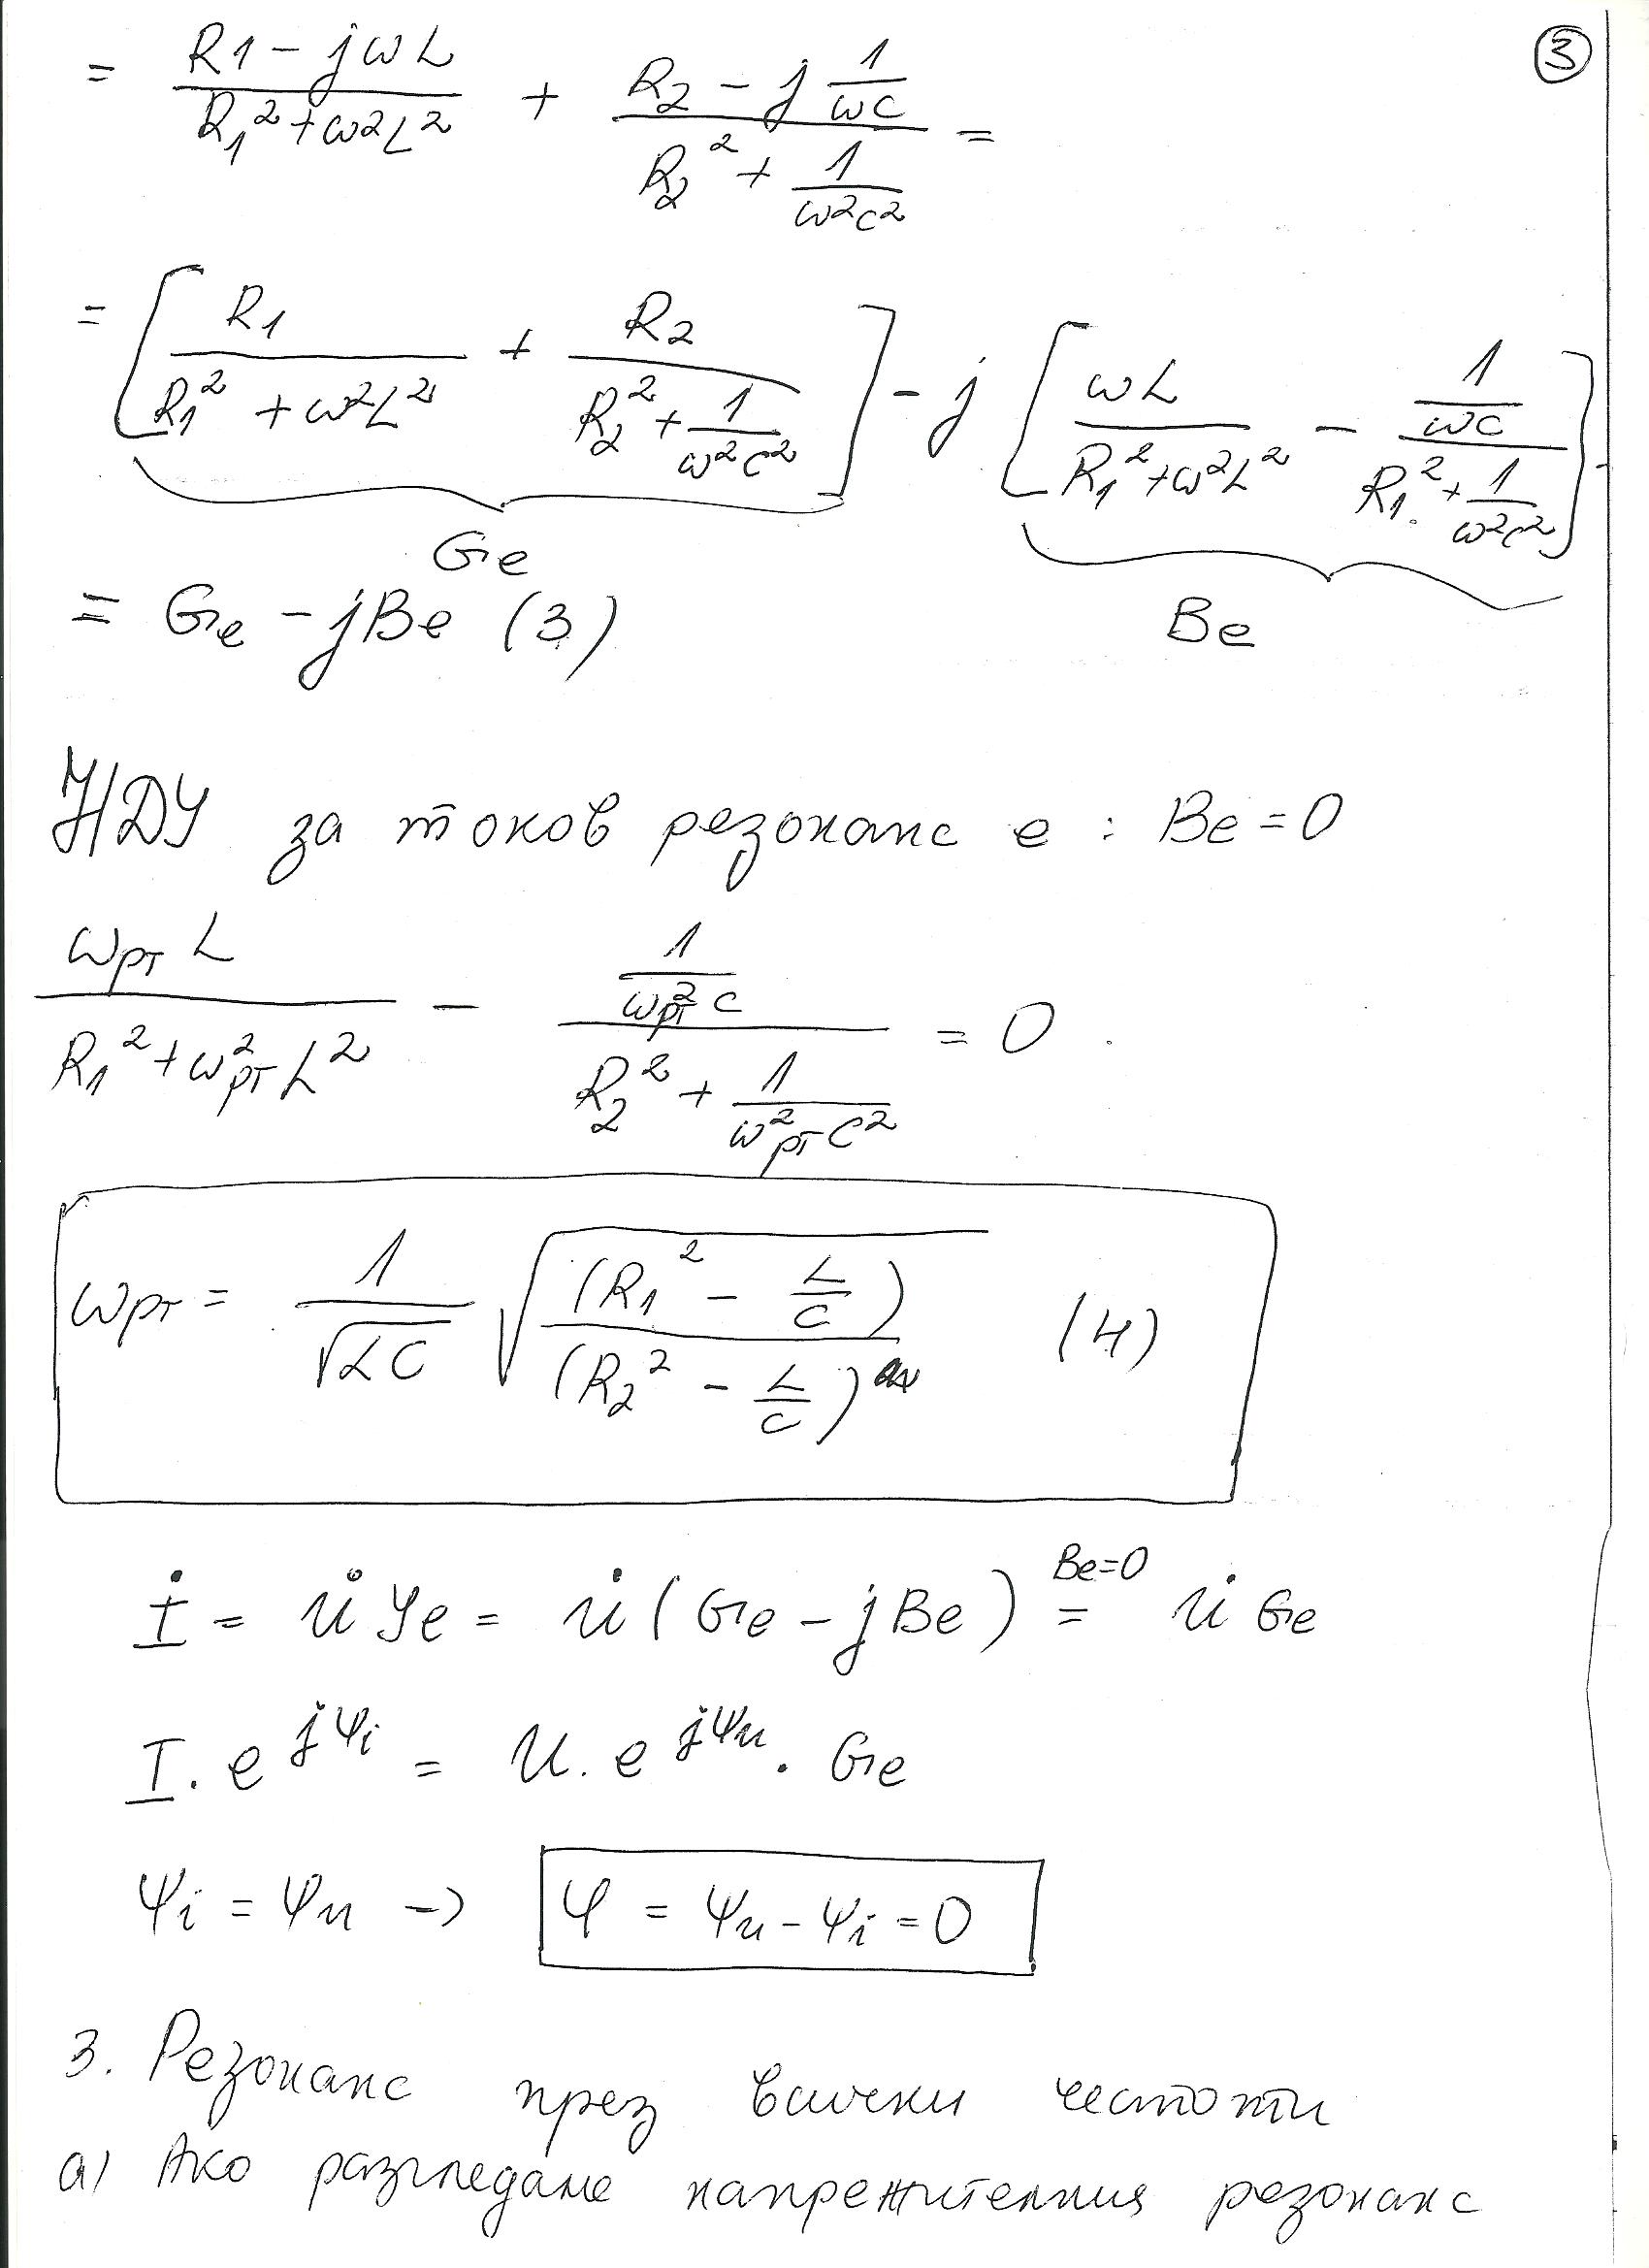 ③
= (R1 - jωL)/(R₁² + ω²L²) + (R₂ - j 1/(ωC))/(R₂² + 1/(ω²C²)) =
= [R₁/(R₁² + ω²L²) + R₂/(R₂² + 1/(ω²C²))] - j [ωL/(R₁² + ω²L²) - (1/(ωC))/(R₁² + 1/(ω²C²))]
Ge Be
= Ge - jBe (3)
НДУ за токов резонанс е : Be = 0
ωрт L/(R₁² + ω²рт L²) - (1/(ω²рт C))/(R₂² + 1/(ω²рт C²)) = 0
ωрт = 1/√(LC) √((R₁² - L/C)/(R₂² - L/C)) (4)
İ = U̇ Ye = U̇ (Ge - jBe) =(Be=0) U̇ Ge
I . e^(jΨi) = U . e^(jΨu) . Ge
Ψi = Ψu -> φ = Ψu - Ψi = 0
3. Резонанс през всички честоти
а) Ако разгледаме напрежителния резонанс